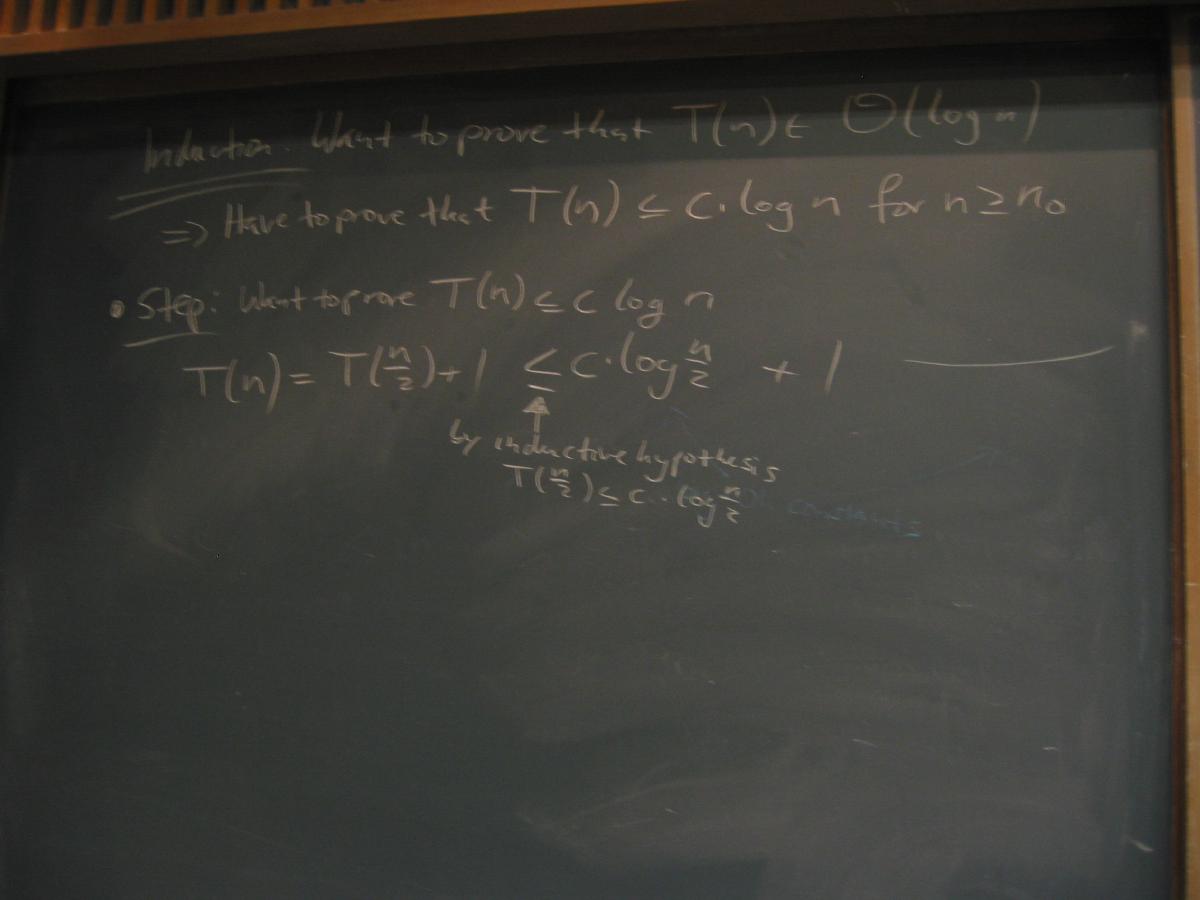 Induction. Want to prove that T(n) ∈ O(log n)
=> Have to prove that T(n) ≤ c · log n for n ≥ n₀
• Step: Want to prove T(n) ≤ c log n
T(n) = T(n/2) + 1 ≤ c · log n/2 + 1
by inductive hypothesis
T(n/2) ≤ c · log n/2
constants